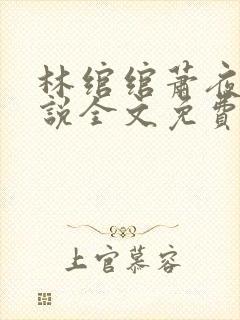 林绾绾萧夜
説全文免費
上官慕容